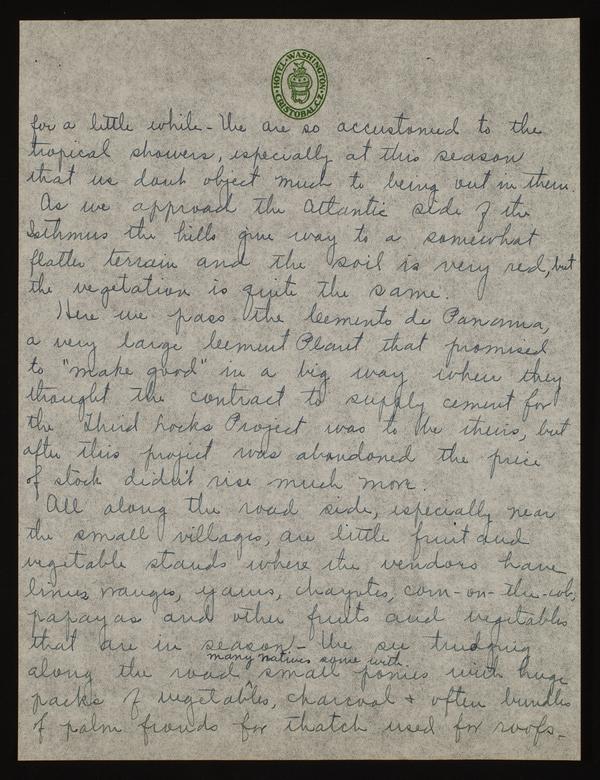 HOTEL WASHINGTON
CRISTOBAL, C.Z.
for a little while - We are so accustomed to the
tropical showers, especially at this season
that we dont object much to being out in them.
As we approach the Atlantic side of the
Isthmus the hills give way to a somewhat
flatter terrain and the soil is very red, but
the vegetation is quite the same.
Here we pass the Cemento de Panama,
a very large Cement Plant that promised
to "make good" in a big way when they
thought the contract to supply cement for
the Third Locks Project was to be theirs, but
after this project was abandoned the price
of stock didn't rise much more.
All along the road side, especially near
the small villages, are little fruit and
vegetable stands where the vendors have
limes, oranges, yams, chayotes, corn-on-the-cob,
papayas and other fruits and vegetables
that are in season - We see trudging
many natives some with
along the road ^ small ponies with huge
packs of vegetables, charcoal + often bundles
of palm fronds for thatch used for roofs -